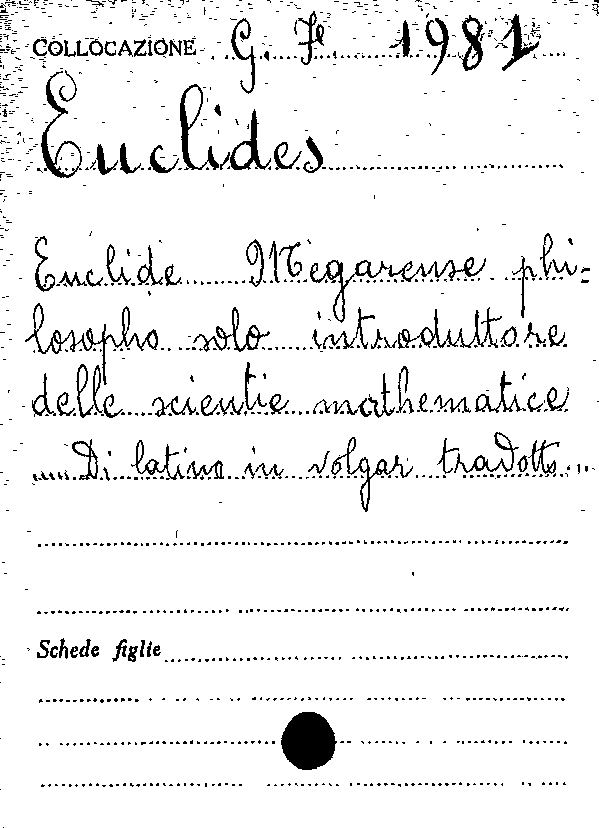 COLLOCAZIONE G. F. 1981
Euclides
Euclide Megarense phi=
losopho solo introduttore
delle scientie mathematice
..... Di latino in volgar tradotto...
Schede figlie